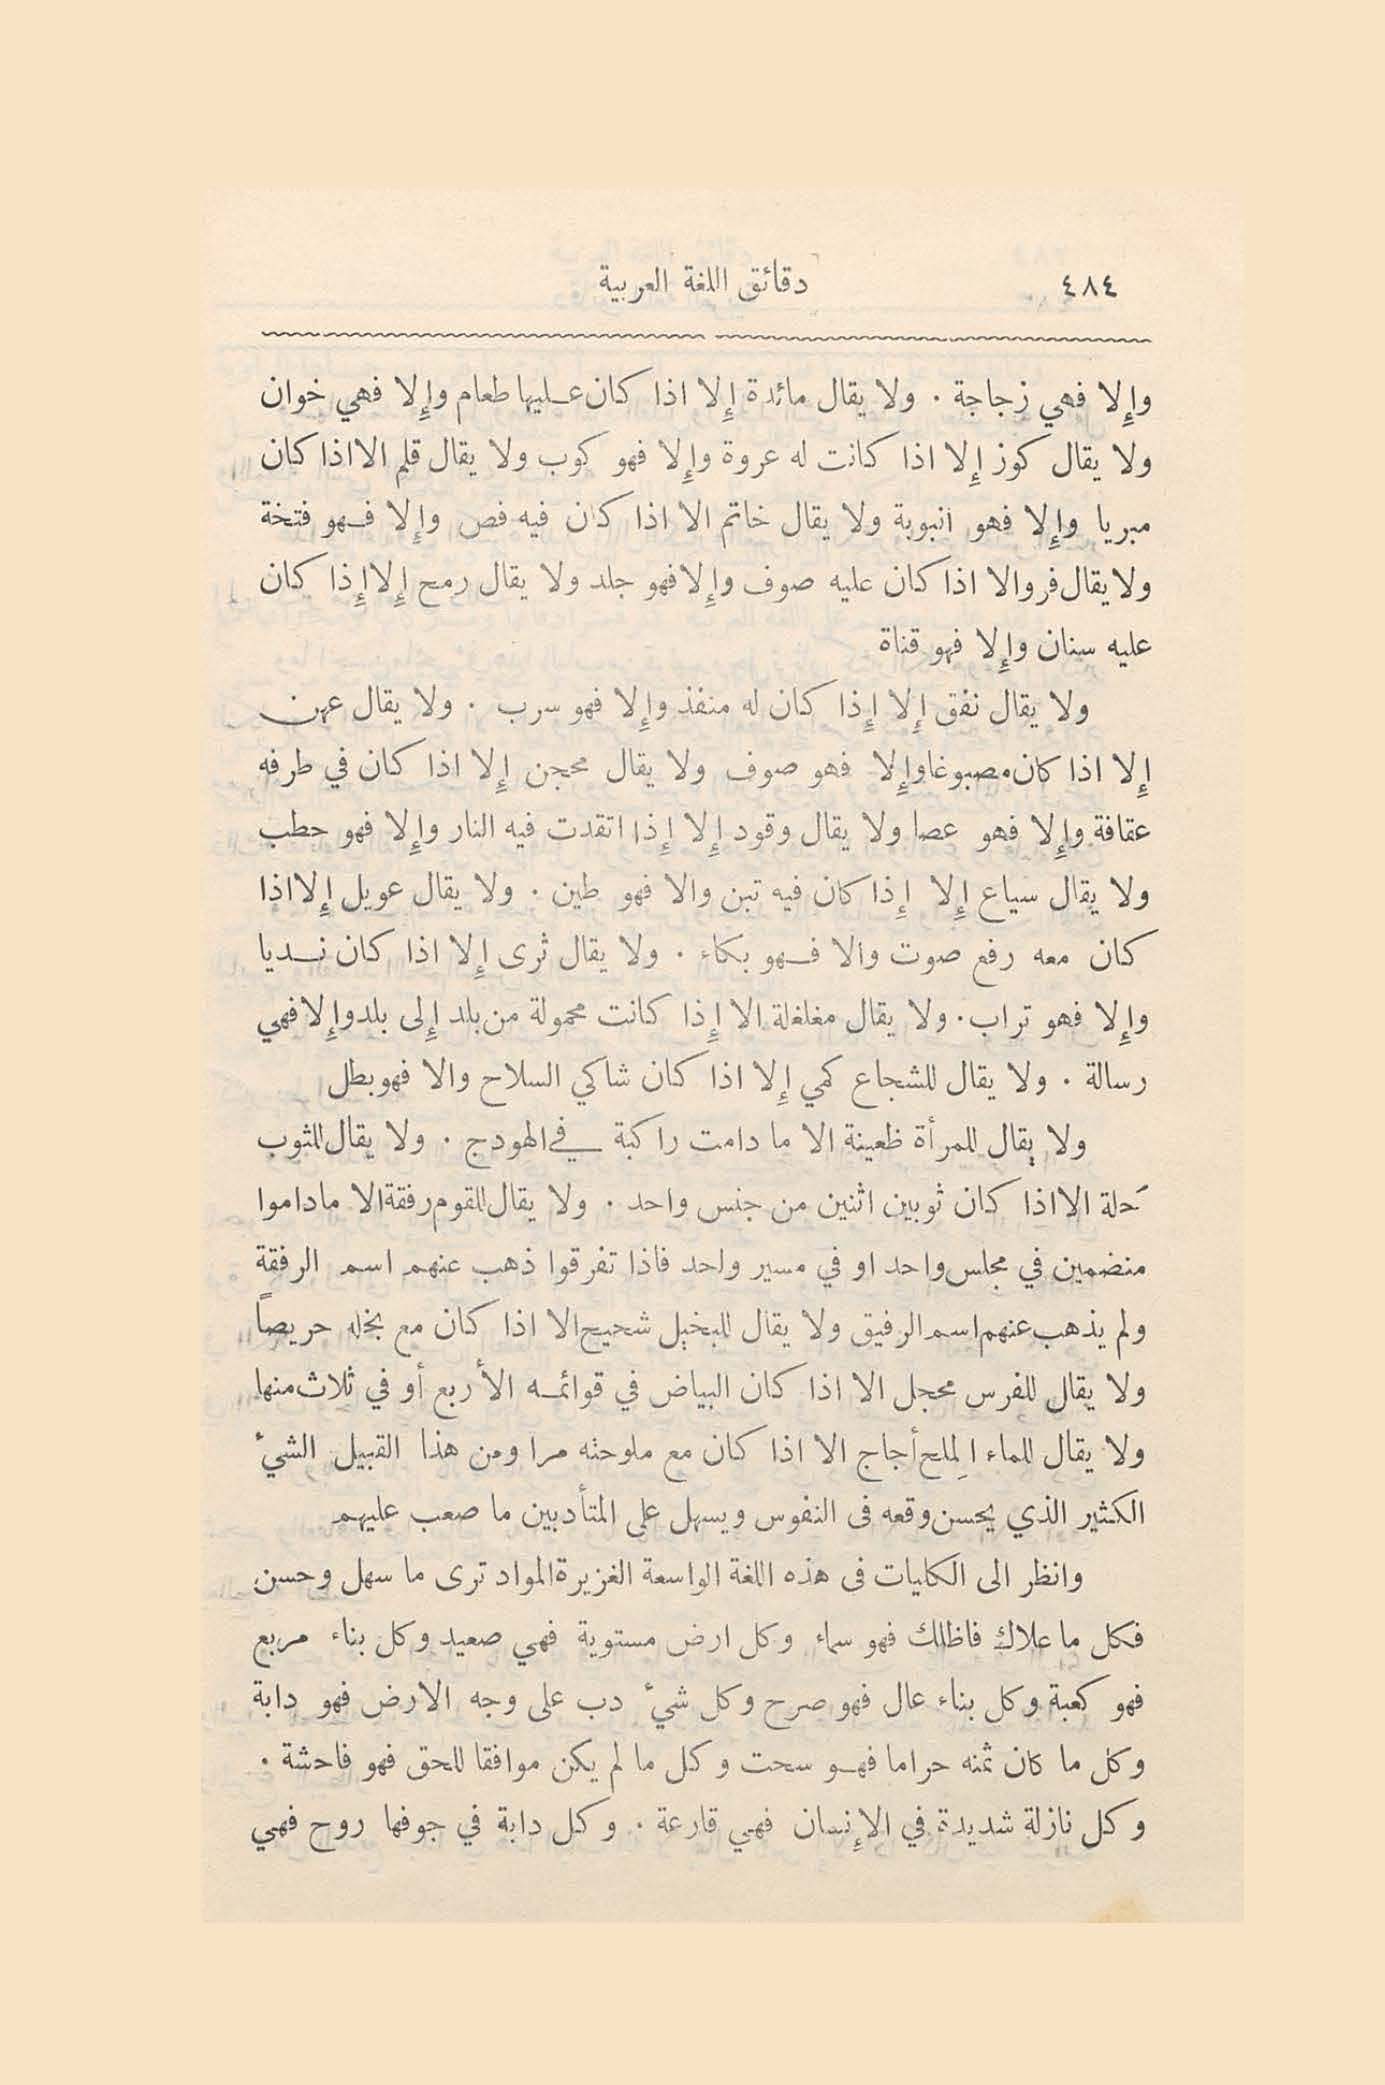 ٤٨٤
دقائق اللغة العربية
وإِلا فهي زجاجة . ولا يقال مائدة إِلا اذا كان عليها طعام وإِلا فهي خوان
ولا يقال كوز إِلا اذا كانت له عروة وإِلا فهو كوب ولا يقال قلم الا اذا كان
مبريا وإِلا فهو أنبوبة ولا يقال خاتم الا اذا كان فيه فص وإِلا فهو فتخة
ولا يقال فرو الا اذا كان عليه صوف وإِلا فهو جلد ولا يقال رمح إِلا إِذا كان
عليه سنان وإِلا فهو قناة
ولا يقال نفق إِلا إِذا كان له منفذ وإِلا فهو سرب . ولا يقال عهن
إِلا اذا كان مصبوغا وإِلا فهو صوف ولا يقال محجن إِلا اذا كان في طرفه
عقافة وإِلا فهو عصا ولا يقال وقود إِلا إِذا اتقدت فيه النار وإِلا فهو حطب
ولا يقال سياع إِلا إِذا كان فيه تبن والا فهو طين . ولا يقال عويل إِلا اذا
كان معه رفع صوت والا فهو بكاء . ولا يقال ثرى إِلا اذا كان نديا
وإِلا فهو تراب . ولا يقال مغلغلة الا إِذا كانت محمولة من بلد إِلى بلد وإِلا فهي
رسالة . ولا يقال للشجاع كمي إِلا اذا كان شاكي السلاح والا فهو بطل
ولا يقال للمرأة ظعينة الا ما دامت راكبة في الهودج . ولا يقال للثوب
حلة الا اذا كان ثوبين اثنين من جنس واحد . ولا يقال للقوم رفقة الا ما داموا
منضمين في مجلس واحد او في مسير واحد فاذا تفرقوا ذهب عنهم اسم الرفقة
ولم يذهب عنهم اسم الرفيق ولا يقال للبخيل شحيح الا اذا كان مع بخله حريصاً
ولا يقال للفرس محجل الا اذا كان البياض في قوائمه الأربع أو في ثلاث منها
ولا يقال للماء المِلح أجاج الا اذا كان مع ملوحته مرا ومن هذا القبيل الشيءُ
الكثير الذي يحسن وقعه فى النفوس ويسهل على المتأدبين ما صعب عليهم
وانظر الى الكليات فى هذه اللغة الواسعة الغزيرة المواد ترى ما سهل وحسن
فكل ما علاك فاظلك فهو سماء وكل ارض مستوية فهي صعيد وكل بناء مربع
فهو كعبة وكل بناء عال فهو صرح وكل شيء دب على وجه الارض فهو دابة
وكل ما كان ثمنه حراما فهو سحت وكل ما لم يكن موافقا للحق فهو فاحشة .
وكل نازلة شديدة في الإِنسان فهي قارعة . وكل دابة في جوفها روح فهي